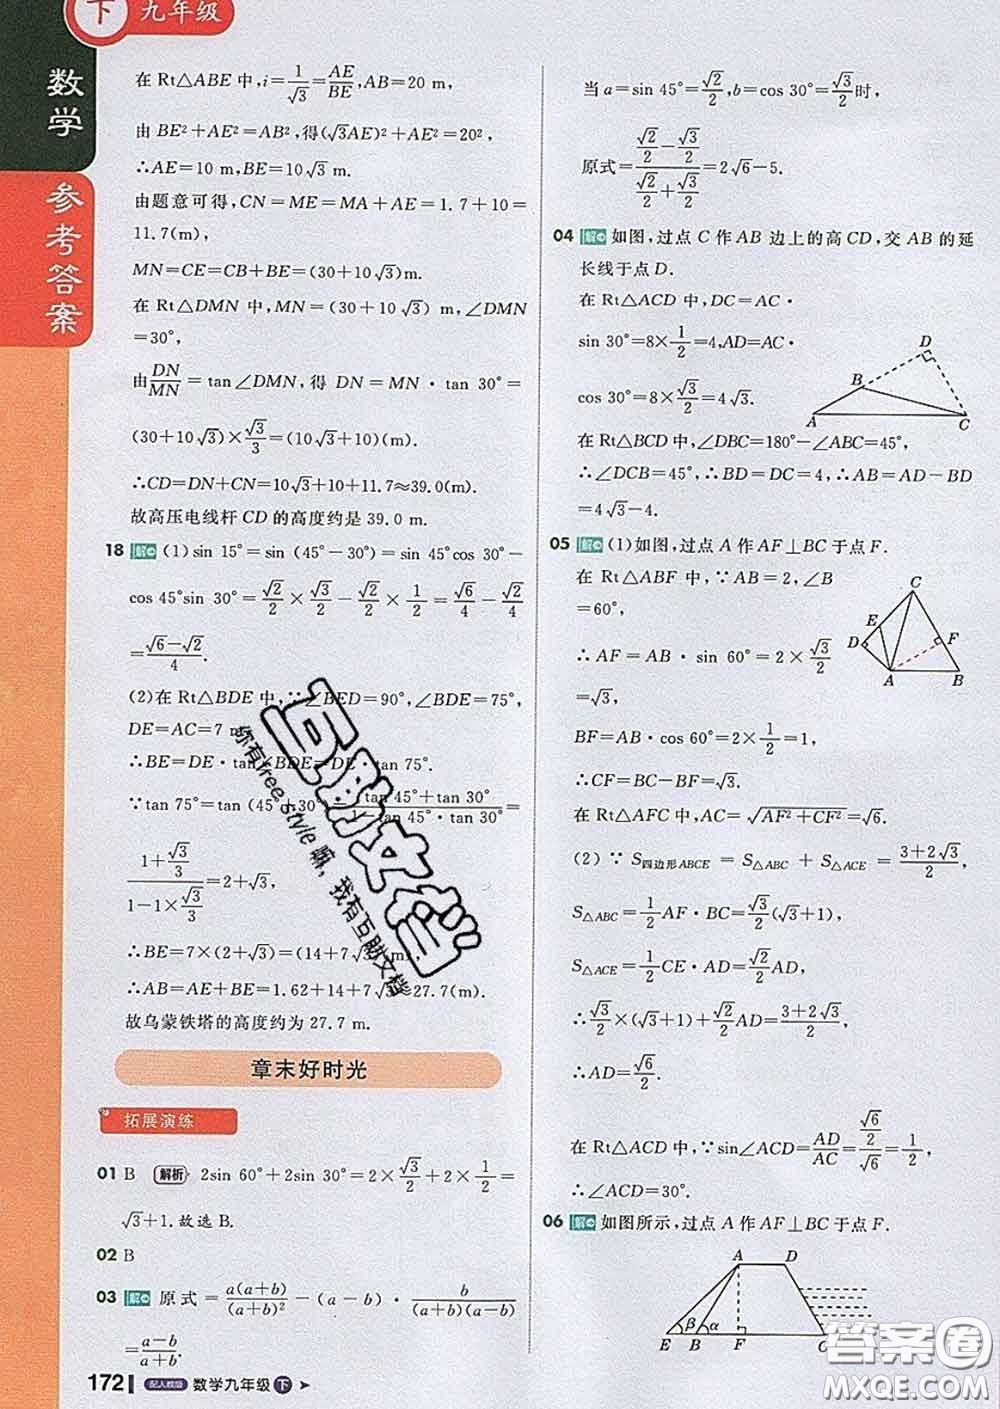 下 九年级
数学
参考答案
在 Rt△ABE 中,i=1/√3=AE/BE,AB=20 m,
由 BE²+AE²=AB²,得(√3AE)²+AE²=20²,
∴AE=10 m,BE=10√3 m.
由题意可得,CN=ME=MA+AE=1.7+10=
11.7(m),
MN=CE=CB+BE=(30+10√3) m.
在 Rt△DMN 中,MN=(30+10√3) m,∠DMN
=30°,
由DN/MN=tan∠DMN,得 DN=MN·tan 30°=
(30+10√3)×√3/3=(10√3+10)(m).
∴CD=DN+CN=10√3+10+11.7≈39.0(m).
故高压电线杆 CD 的高度约是 39.0 m.
18 解 (1)sin 15°=sin (45°-30°)=sin 45°cos 30°-
cos 45°sin 30°=√2/2×√3/2-√2/2×1/2=√6/4-√2/4
=(√6-√2)/4.
(2)在 Rt△BDE 中,∵∠BED=90°,∠BDE=75°,
DE=AC=7 m,
∴BE=DE·tan∠BDE=DE·tan 75°.
∵tan 75°=tan (45°+30°)=(tan 45°+tan 30°)/(1-tan 45°·tan 30°)=
(1+√3/3)/(1-1×√3/3)=2+√3,
∴BE=7×(2+√3)=(14+7√3)(m).
∴AB=AE+BE=1.62+14+7√3≈27.7(m).
故乌蒙铁塔的高度约为 27.7 m.
章末好时光
拓展演练
01 B 解析 2sin 60°+2sin 30°=2×√3/2+2×1/2=
√3+1.故选 B.
02 B
03 解 原式=a(a+b)/(a+b)²-(a-b)·b/(a+b)(a-b)
=(a-b)/(a+b).
172 配人教版 数学九年级 下
当 a=sin 45°=√2/2,b=cos 30°=√3/2时,
原式=(√2/2-√3/2)/(√2/2+√3/2)=2√6-5.
04 解 如图,过点 C 作 AB 边上的高 CD,交 AB 的延
长线于点 D.
在 Rt△ACD 中,DC=AC·
sin 30°=8×1/2=4,AD=AC·
cos 30°=8×√3/2=4√3.
D
B
A
C
在 Rt△BCD 中,∠DBC=180°-∠ABC=45°,
∴∠DCB=45°,∴BD=DC=4,∴AB=AD-BD
=4√3-4.
05 解 (1)如图,过点 A 作 AF⊥BC 于点 F.
在 Rt△ABF 中,∵AB=2,∠B
=60°,
∴AF=AB·sin 60°=2×√3/2
=√3,
C
E
D
F
A
B
BF=AB·cos 60°=2×1/2=1,
∴CF=BC-BF=√3.
在 Rt△AFC 中,AC=√(AF²+CF²)=√6.
(2)∵S四边形ABCE=S△ABC+S△ACE=(3+2√3)/2,
S△ABC=1/2AF·BC=√3/2(√3+1),
S△ACE=1/2CE·AD=√2/2AD,
∴√3/2×(√3+1)+√2/2AD=(3+2√3)/2,
∴AD=√6/2.
在 Rt△ACD 中,∵sin∠ACD=AD/AC=(√6/2)/√6=1/2,
∴∠ACD=30°.
06 解 如图所示,过点 A 作 AF⊥BC 于点 F.
A
D
β
α
E
B
F
C
互助文档
你有free style嘛,我有互助文档
答案圈
MXQE.COM